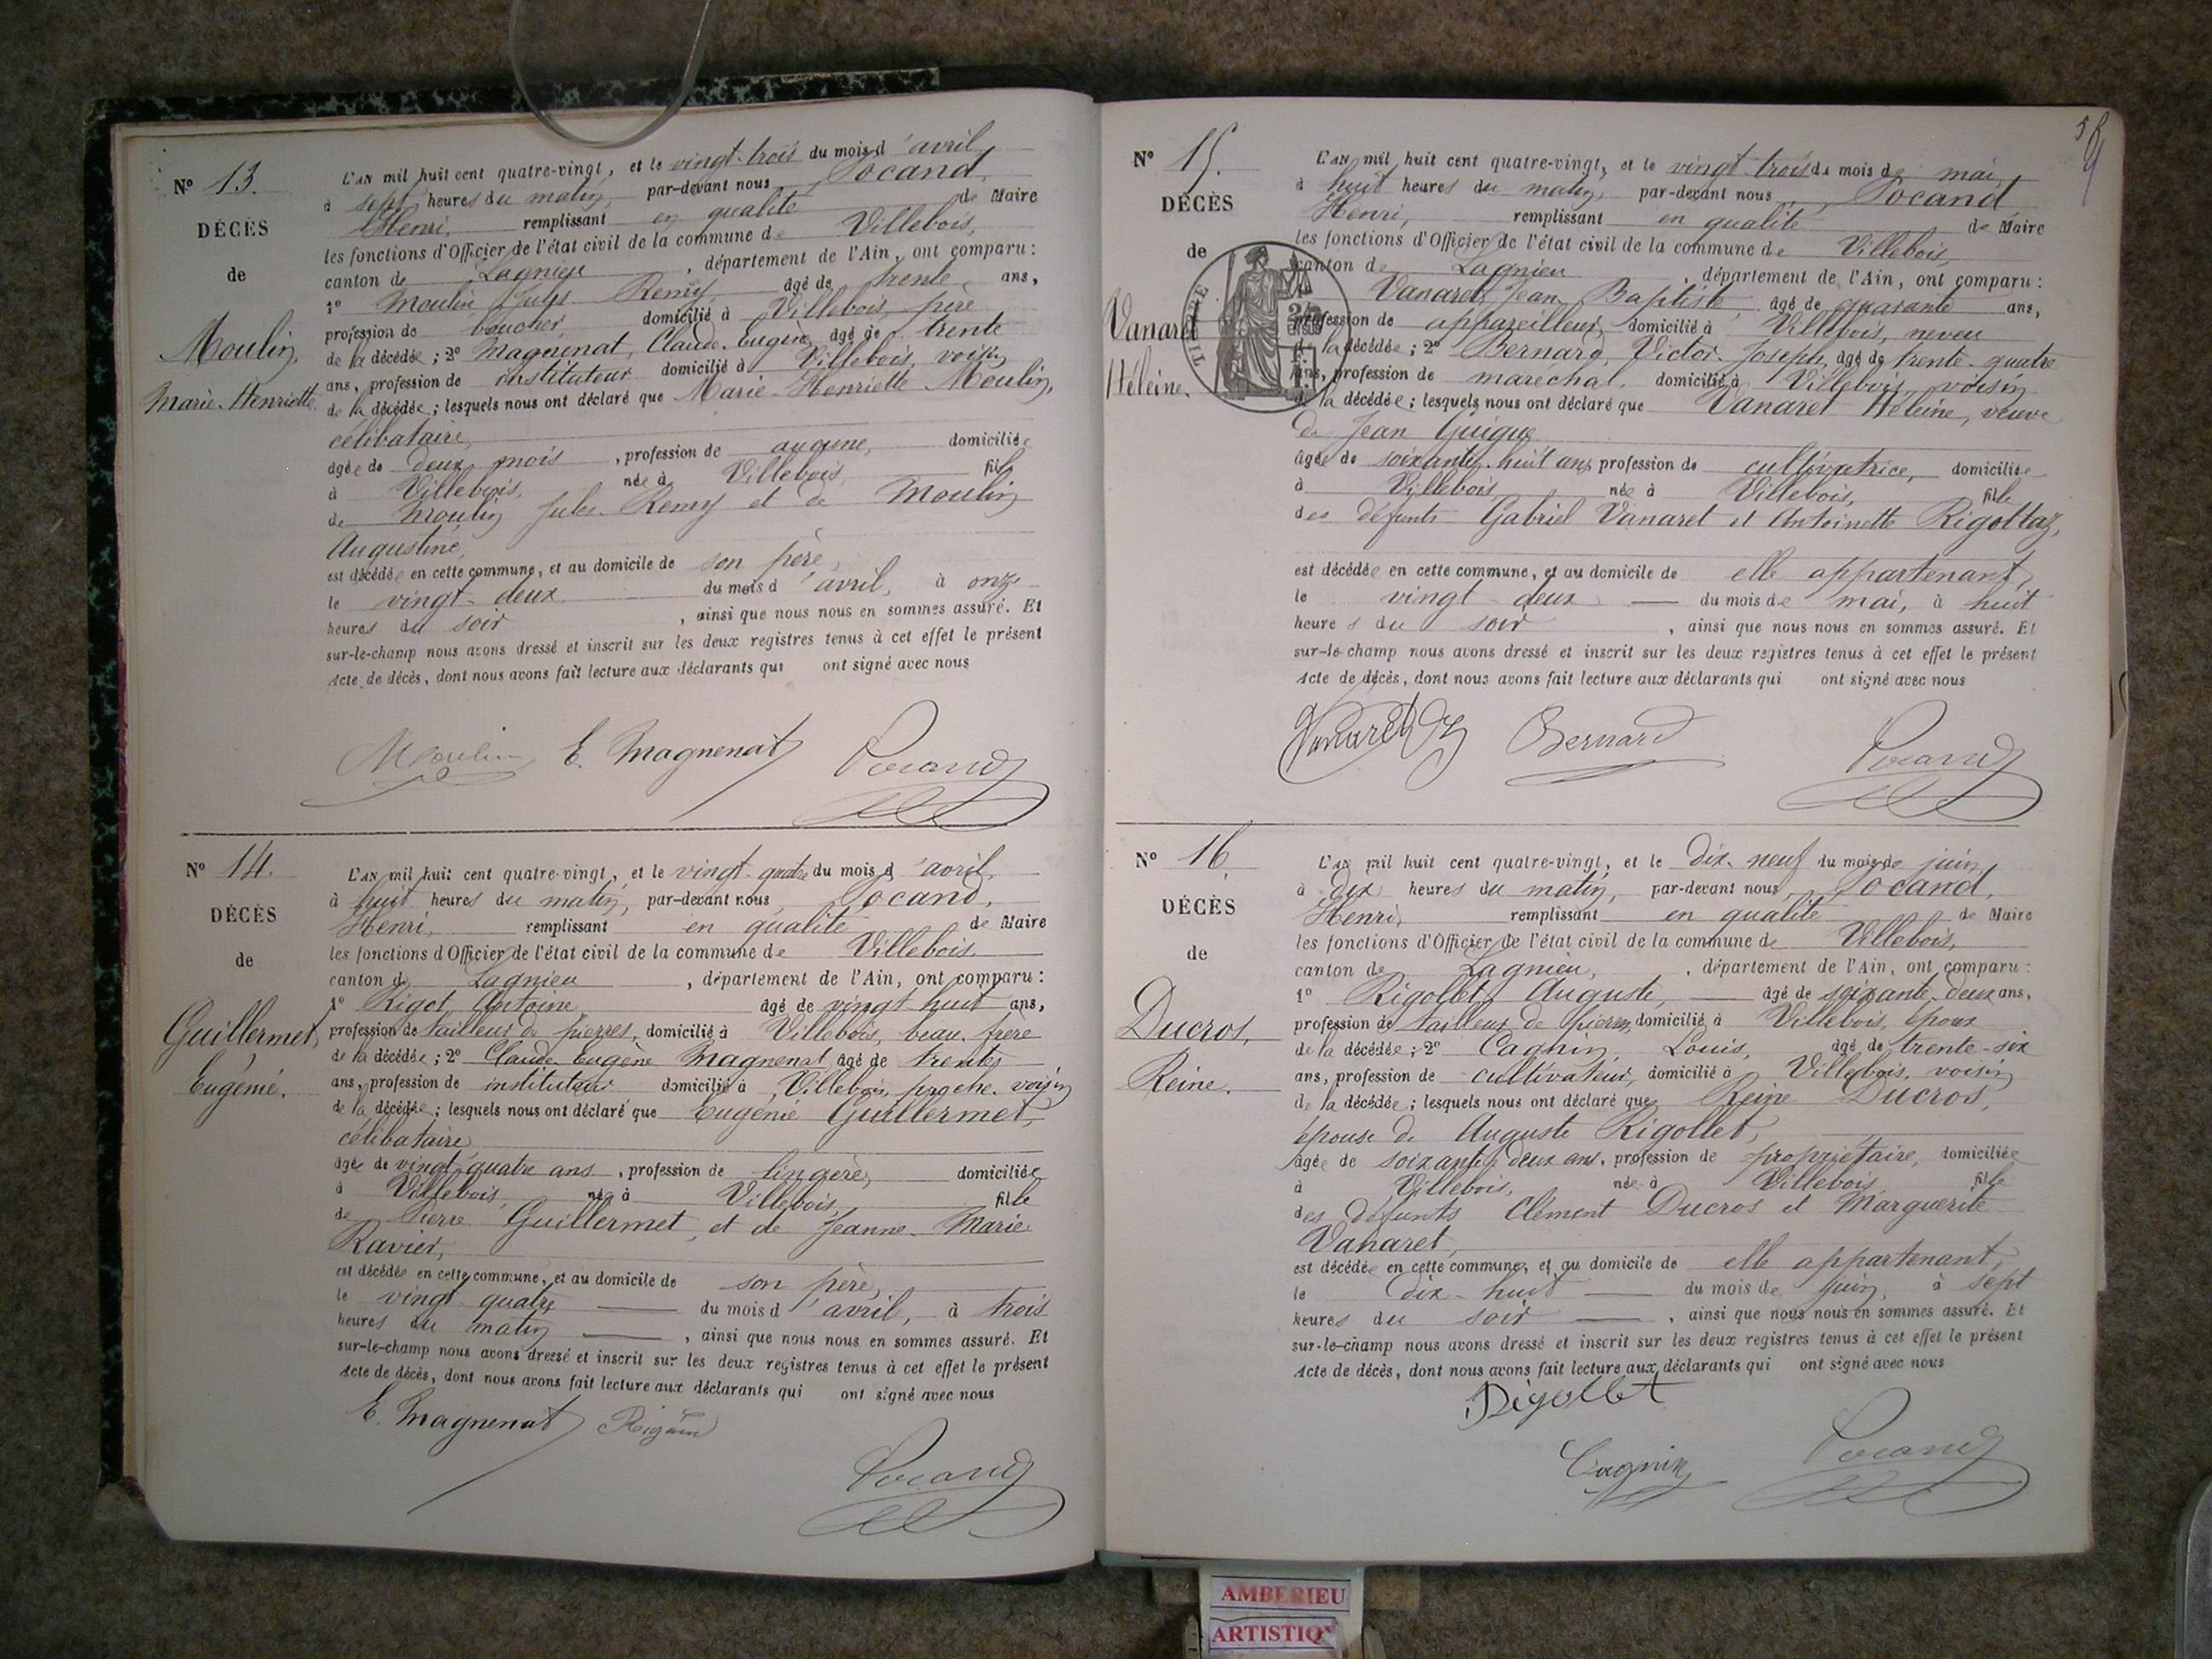 N° 13.
DÉCÈS
de
Moulin,
Marie-Henriette.
L'AN mil huit cent quatre-vingt, et le vingt-trois du mois d'avril,
à sept heures du matin, par-devant nous Pocand,
Henri, remplissant en qualité de Maire
les fonctions d'Officier de l'état civil de la commune de Villebois,
canton de Lagnieu, département de l'Ain, ont comparu :
1° Moulin Jules Remy, âgé de trente ans,
profession de boucher, domicilié à Villebois, père
de la décédée ; 2° Magnenat, Claude-Eugène, âgé de trente
ans, profession de instituteur domicilié à Villebois, voisin
de la décédée ; lesquels nous ont déclaré que Marie-Henriette Moulin,
célibataire,
âgée de deux mois, profession de aucune, domiciliée
à Villebois, née à Villebois, fille
de Moulin Jules Remy et de Moulin
Augustine,
est décédée en cette commune, et au domicile de son père,
le vingt-deux du mois d'avril, à onze
heures du soir, ainsi que nous nous en sommes assuré. Et
sur-le-champ nous avons dressé et inscrit sur les deux registres tenus à cet effet le présent
acte de décès, dont nous avons fait lecture aux déclarants qui ont signé avec nous
Moulin E. Magnenat Pocand
N° 14.
DÉCÈS
de
Guillermet,
Eugénie.
L'AN mil huit cent quatre-vingt, et le vingt-quatre du mois d'avril,
à huit heures du matin, par-devant nous Pocand,
Henri, remplissant en qualité de Maire
les fonctions d'Officier de l'état civil de la commune de Villebois
canton de Lagnieu, département de l'Ain, ont comparu :
1° Rigot Antoine âgé de vingt huit ans,
profession de tailleur de pierres, domicilié à Villebois, beau-frère
de la décédée ; 2° Claude Eugène Magnenat, âgé de trente
ans, profession de instituteur domicilié à Villebois, proche voisin
de la décédée ; lesquels nous ont déclaré que Eugénie Guillermet,
célibataire
âgée de vingt-quatre ans, profession de lingère, domiciliée
à Villebois, née à Villebois, fille
de Pierre Guillermet, et de Jeanne-Marie
Ravier,
est décédée en cette commune, et au domicile de son père,
le vingt quatre du mois d'avril, à trois
heures du matin, ainsi que nous nous en sommes assuré. Et
sur-le-champ nous avons dressé et inscrit sur les deux registres tenus à cet effet le présent
acte de décès, dont nous avons fait lecture aux déclarants qui ont signé avec nous
E. Magnenat
Pocand
N° 15.
DÉCÈS
de
Vanaret
Héleine.
L'AN mil huit cent quatre-vingt, et le vingt-trois du mois de mai,
à huit heures du matin, par-devant nous, Pocand
Henri, remplissant en qualité de Maire
les fonctions d'Officier de l'état civil de la commune de Villebois,
canton de Lagnieu, département de l'Ain, ont comparu :
Vanaret, Jean Baptiste, âgé de quarante ans,
profession de appareilleur, domicilié à Villebois, neveu
de la décédée ; 2° Bernard, Victor-Joseph, âgé de trente-quatre
ans, profession de maréchal, domicilié à Villebois, voisin
de la décédée ; lesquels nous ont déclaré que Vanaret Héleine, veuve
de Jean Guigue
âgée de soixante-huit ans, profession de cultivatrice, domiciliée
à Villebois née à Villebois, fille
des défunts Gabriel Vanaret et Antoinette Rigottaz,
est décédée en cette commune, et au domicile de elle appartenant,
le vingt-deux du mois de mai, à huit
heures du soir, ainsi que nous nous en sommes assuré. Et
sur-le-champ nous avons dressé et inscrit sur les deux registres tenus à cet effet le présent
acte de décès, dont nous avons fait lecture aux déclarants qui ont signé avec nous
Vanaret Bernard Pocand
N° 16.
DÉCÈS
de
Ducros,
Reine.
L'AN mil huit cent quatre-vingt, et le dix-neuf du mois de juin,
à dix heures du matin, par-devant nous, Pocand,
Henri, remplissant en qualité de Maire
les fonctions d'Officier de l'état civil de la commune de Villebois,
canton de Lagnieu, département de l'Ain, ont comparu :
1° Rigollet, Auguste, âgé de soixante-deux ans,
profession de tailleur de pierres, domicilié à Villebois, époux
de la décédée ; 2° Cagnin, Louis, âgé de trente-six
ans, profession de cultivateur, domicilié à Villebois, voisin
de la décédée ; lesquels nous ont déclaré que Reine Ducros,
épouse de Auguste Rigollet,
âgée de soixante deux ans, profession de propriétaire, domiciliée
à Villebois, née à Villebois, fille
des défunts Clément Ducros et Marguerite
Vanaret,
est décédée en cette commune, et au domicile de elle appartenant,
le dix-huit du mois de juin, à sept
heures du soir, ainsi que nous nous en sommes assuré. Et
sur-le-champ nous avons dressé et inscrit sur les deux registres tenus à cet effet le présent
acte de décès, dont nous avons fait lecture aux déclarants qui ont signé avec nous
Rigollet
Cagnin Pocand
AMBERIEU
ARTISTIQ